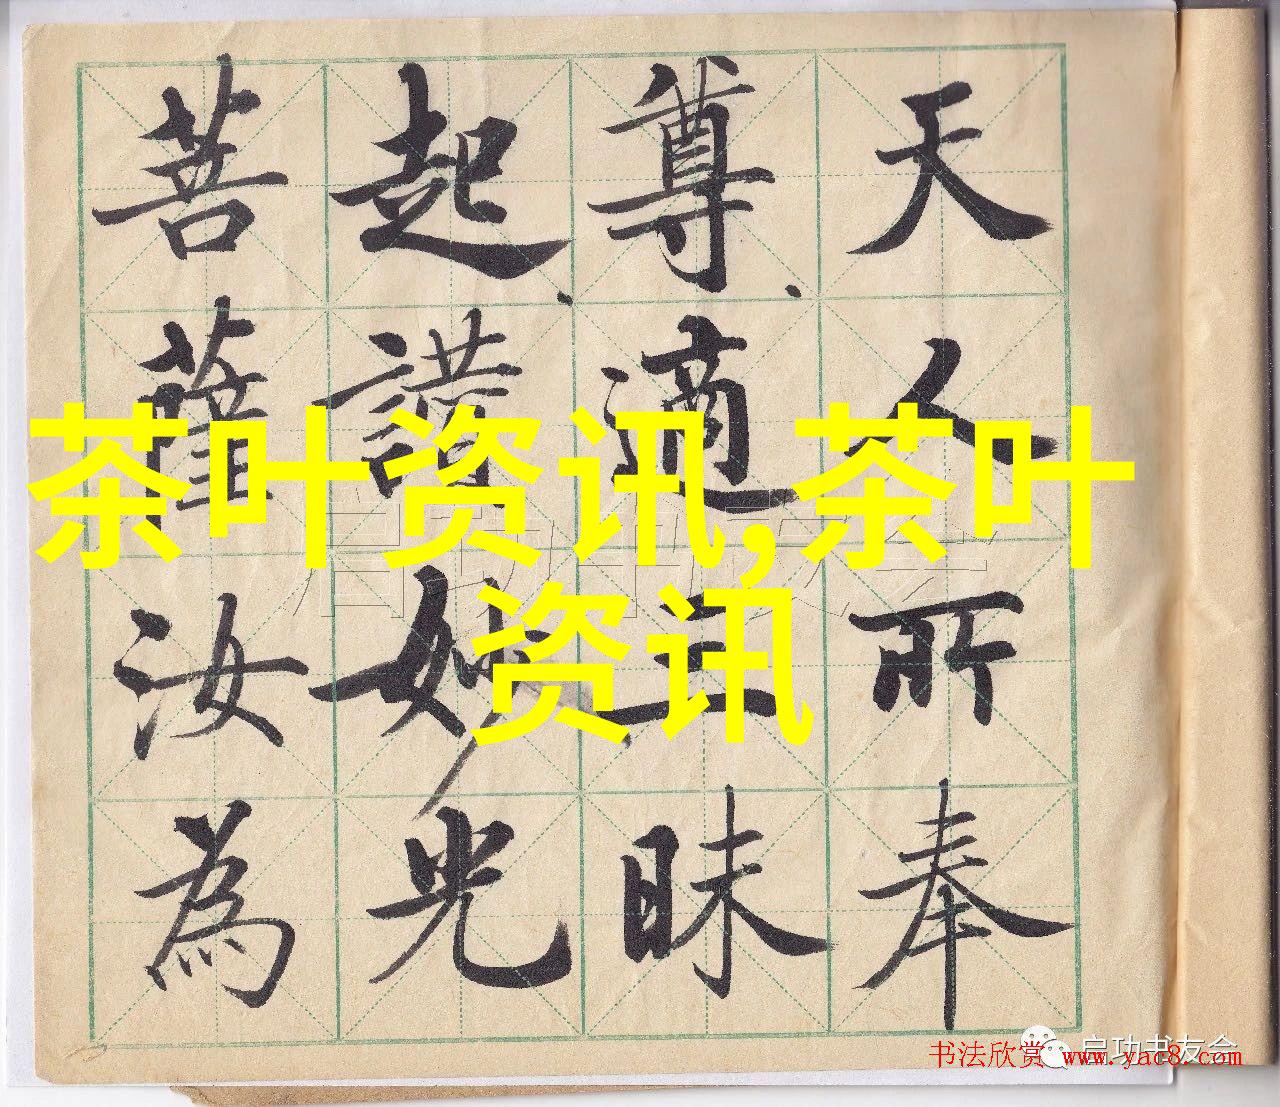 茶叶资讯,茶叶
资讯
天人所奉
尊適三昧
起妙光
菩薩汝為
启功书友会
启功书友会
书法欣赏 www.yac8.com